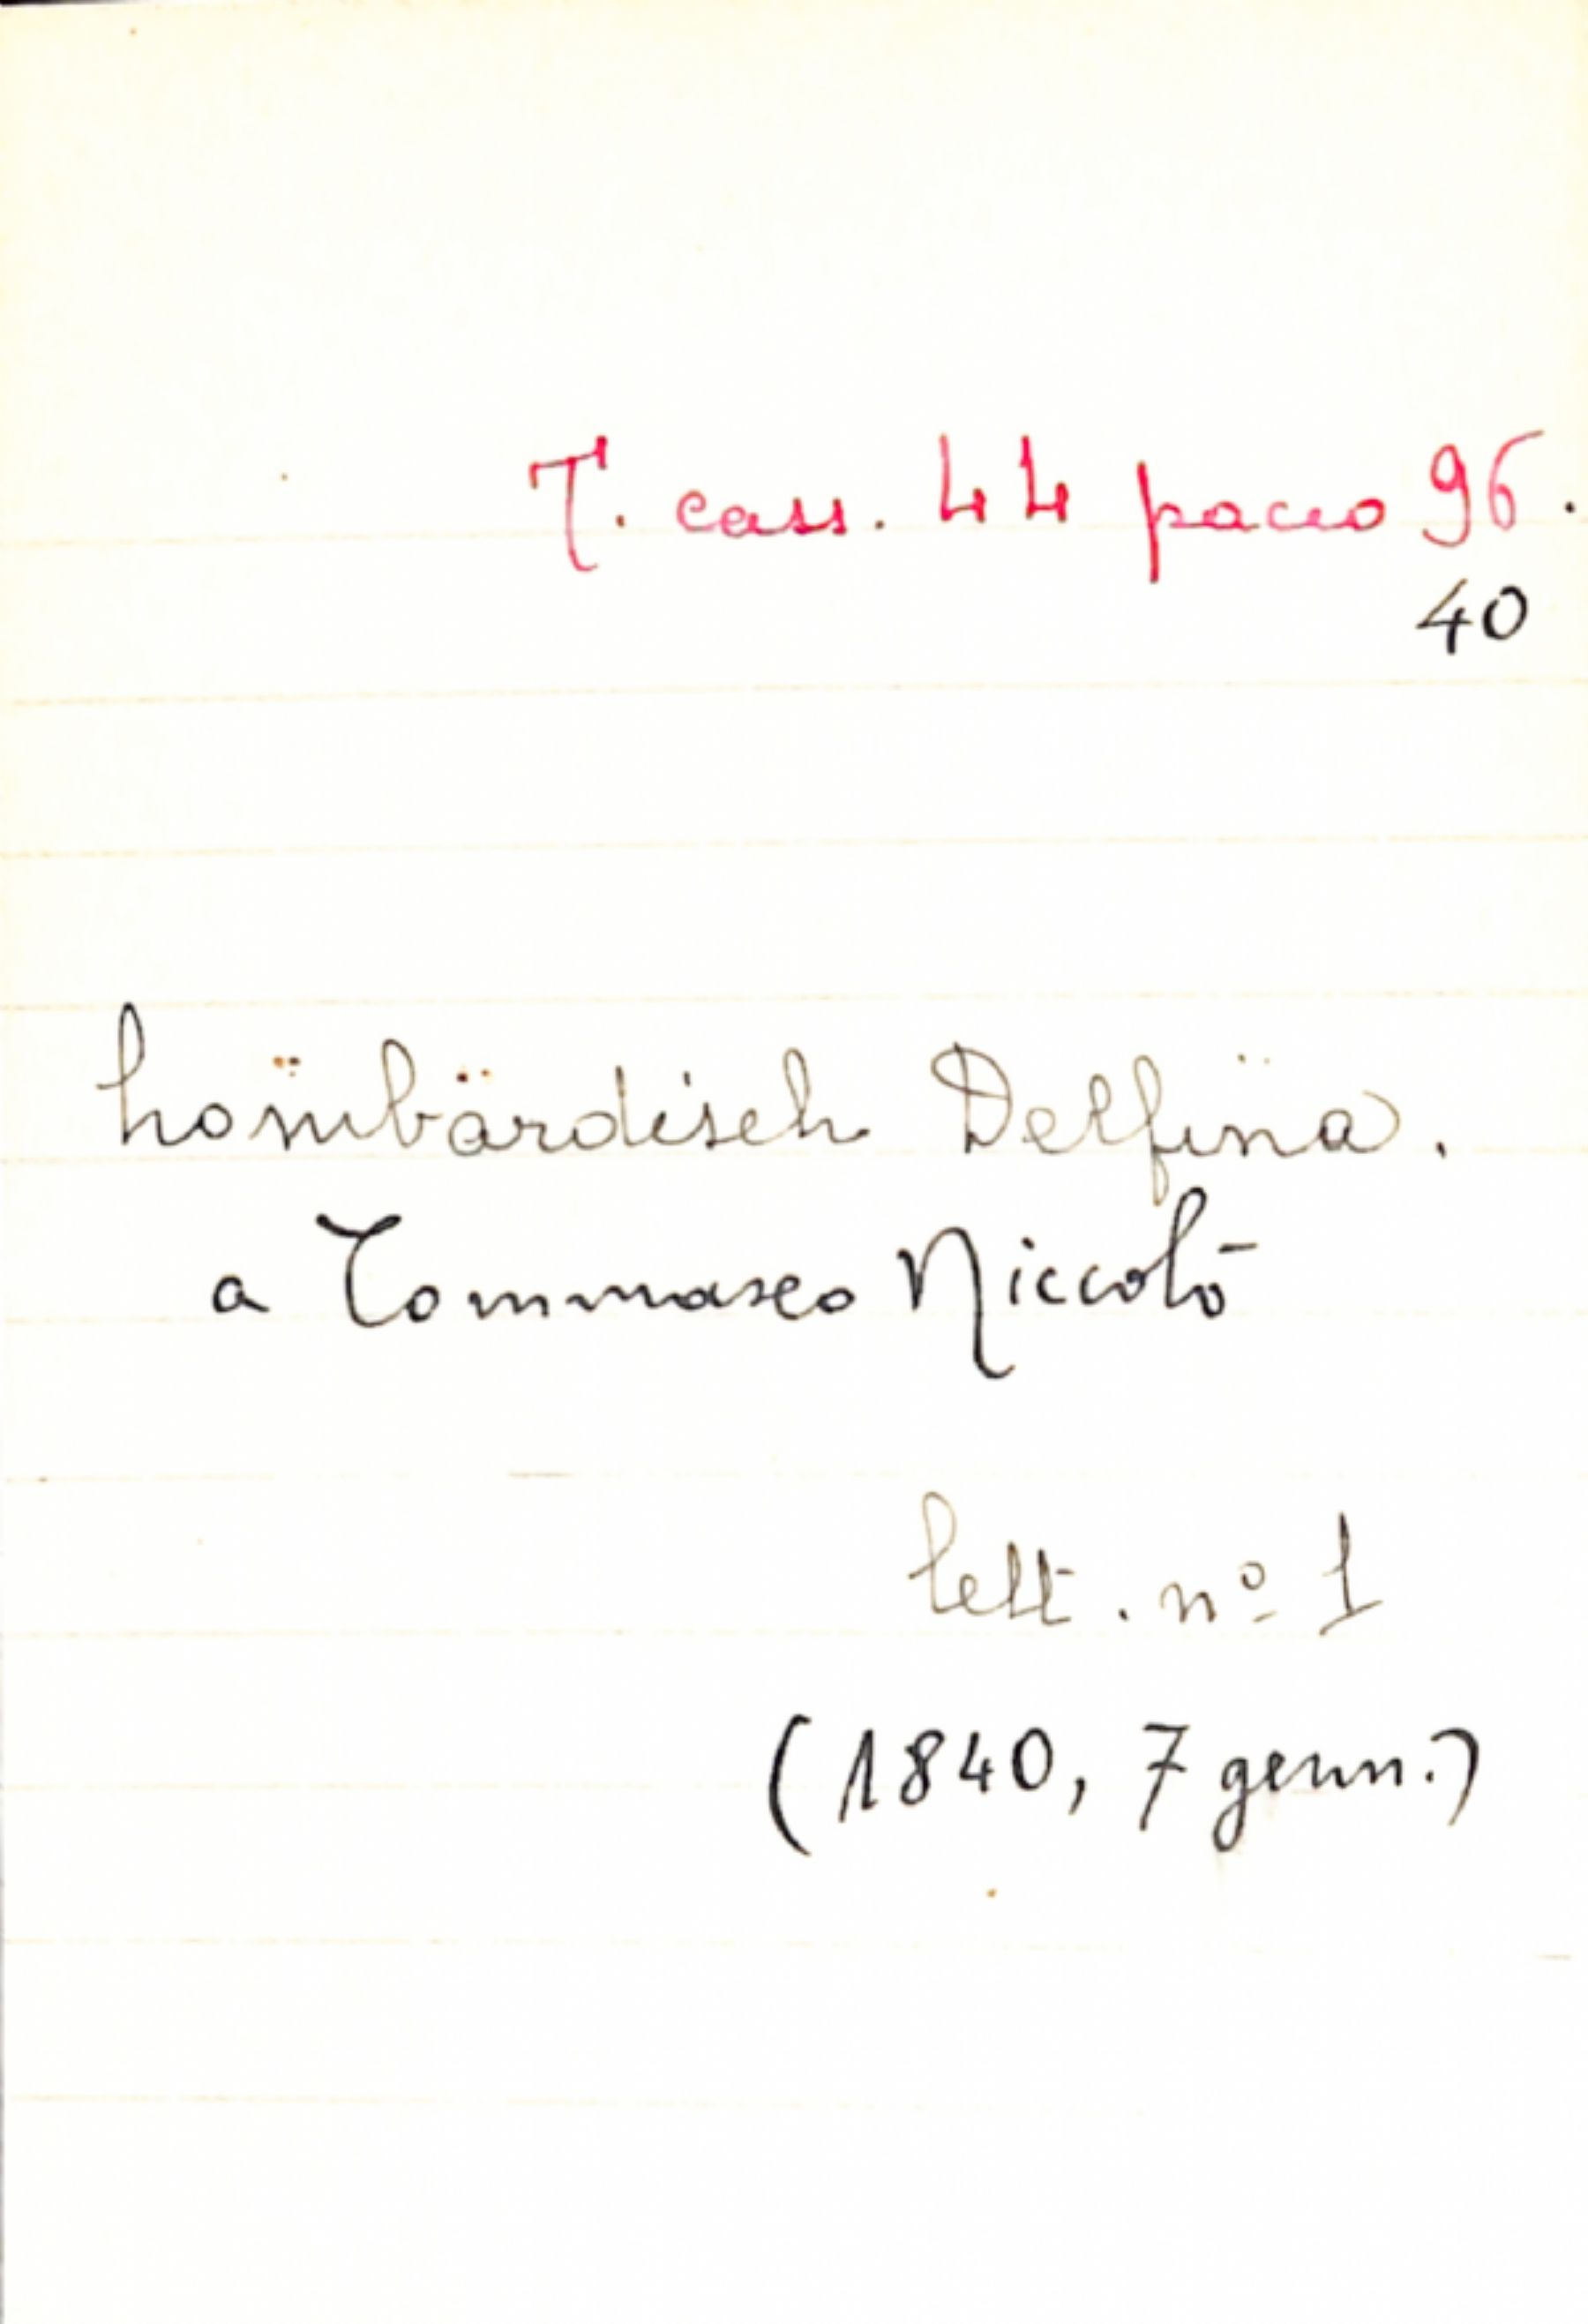 T. cass. 44 pacco 96.
40
Lömbärdisch Delfina.
a Tommaseo Niccolò
lett. nº 1
(1840, 7 genn.)